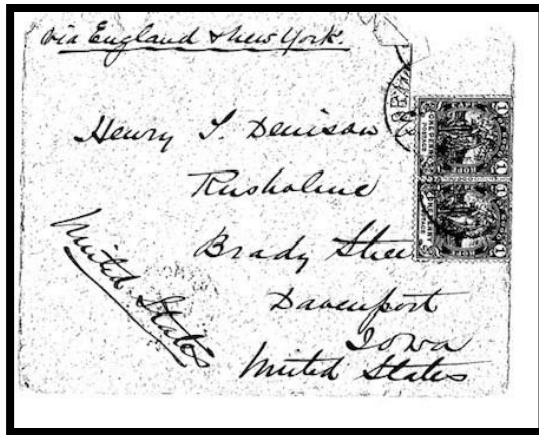 via England & New York.
Henry S. Denison
Rusholme
Brady Stree
Davenport
Iowa
United States
United States
CAPE
HOPE
CAPE
HOPE